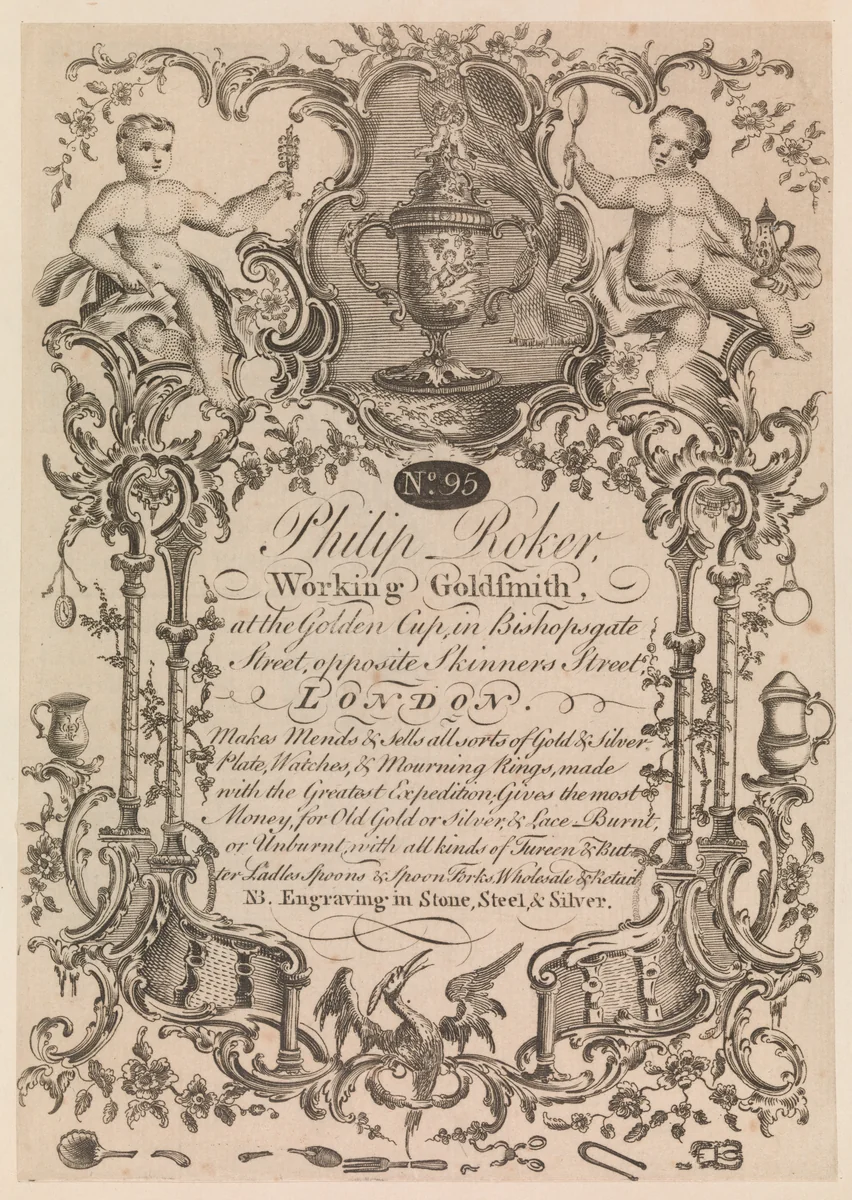 No. 95
Philip Roker,
Working Goldſmith,
at the Golden Cup, in Bishopsgate
Street, opposite Skinners Street,
LONDON.
Makes Mends & sells all sorts of Gold & Silver
Plate, Watches, & Mourning Rings, made
with the Greatest Expedition, Gives the most
Money, for Old Gold or Silver, & Lace-Burnt,
or Unburnt, with all kinds of Tureen & But-
ter Ladles Spoons & Spoon Forks, Wholesale & Retail
NB. Engraving in Stone, Steel, & Silver.